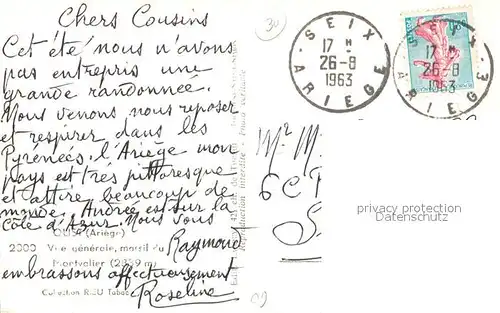 Chers Cousins
Cet été nous n'avons
pas entrepris une
grande randonnée.
Nous venons nous reposer
et respirer dans les
Pyrénées. l'Ariège mon
pays est très pittoresque
et attire beaucoup de
monde. Andrée est sur la
côte d'Azur. Nous vous
embrassons affectueusement
Raymond
Roseline
(Ariège)
Vue générale, massif du
Montvalier (2839 m)
Collection RIEU Tabac
Reproduction interdite
30
SEIX
17 H
26-8
1963
ARIEGE
SEIX
17 H
26-8
1963
ARIEGE
Mr M
6 C
privacy protection
Datenschutz